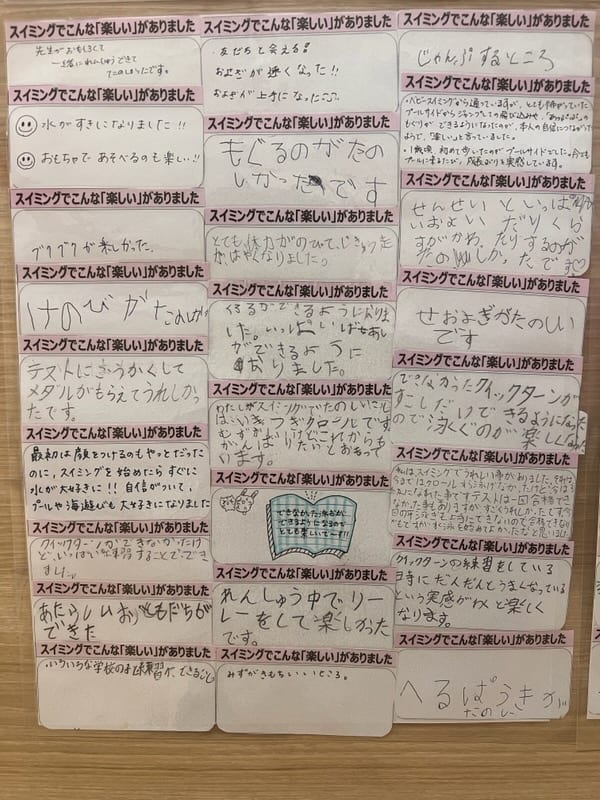 スイミングでこんな「楽しい」がありました
先生がおもしろくて
一緒にれんしゅうできて
たのしかったです。
スイミングでこんな「楽しい」がありました
水がすきになりました!!
おもちゃであそべるのも楽しい!!
スイミングでこんな「楽しい」がありました
ブクブクが楽しかった。
スイミングでこんな「楽しい」がありました
けのびがたのしかった
スイミングでこんな「楽しい」がありました
テストにごうかくして
メダルがもらえてうれしかっ
たです。
スイミングでこんな「楽しい」がありました
最初は顔をつけるのもやっとだった
のに、スイミングを始めたらすぐに
水が大好きに!!自信がついて、
プールや海遊びも大好きになりました
スイミングでこんな「楽しい」がありました
クイックターンができなかったけ
ど、いっぱい練習することでできま
した
スイミングでこんな「楽しい」がありました
あたらしいおともだちが
できた
スイミングでこんな「楽しい」がありました
いろいろな学校の子と練習ができること
スイミングでこんな「楽しい」がありました
・友だちと会える!!
およぎが速くなった!!
およぎが上手になった
スイミングでこんな「楽しい」がありました
もぐるのがたの
しかったです
スイミングでこんな「楽しい」がありました
とても、体力がのびて、
が、はやくなりました。
スイミングでこんな「楽しい」がありました
できるようになりまし
た。いっぱい
ができるように
なりました。
スイミングでこんな「楽しい」がありました
わたしがスイミングでたのしいところ
はいきつぎクロールです
むずかしいけどこれからも
がんばりたいとおもって
います。
スイミングでこんな「楽しい」がありました
できなかった泳ぎが
できるようになるのが
とても楽しいでーす!!
スイミングでこんな「楽しい」がありました
れんしゅう中でリー
レーをして楽しかった
です。
スイミングでこんな「楽しい」がありました
みずがきもちいいところ。
スイミングでこんな「楽しい」がありました
じゃんぷするところ
スイミングでこんな「楽しい」がありました
・ベビースイミングから通っていますが、とても怖がっていた
プールサイドからジャンプしての飛び込みや、
もぐりができるようになったのが、本人の自信につながった
ようで、「楽しい」と言っていました。
・1歳頃、初めて歩いたのがプールサイドでした。今でも
プールに来るたび、成長ぶりを実感しています。
スイミングでこんな「楽しい」がありました
せんせいといっぱい
おいだりくら
すがかわったりするのが
たのしかったです
スイミングでこんな「楽しい」がありました
せおよぎがたのしい
です
スイミングでこんな「楽しい」がありました
できなかったクイックターンが
すこしだけできるようになった
ので泳ぐのが楽しくなった
スイミングでこんな「楽しい」がありました
私はスイミングでうれしい事がありました。それは
スイミングでこんな「楽しい」がありました
クイックターンの練習をしている
時にだんだんとうまくなっている
という実感がわくと楽しく
なります。
スイミングでこんな「楽しい」がありました
へるぱうきが
たのしい